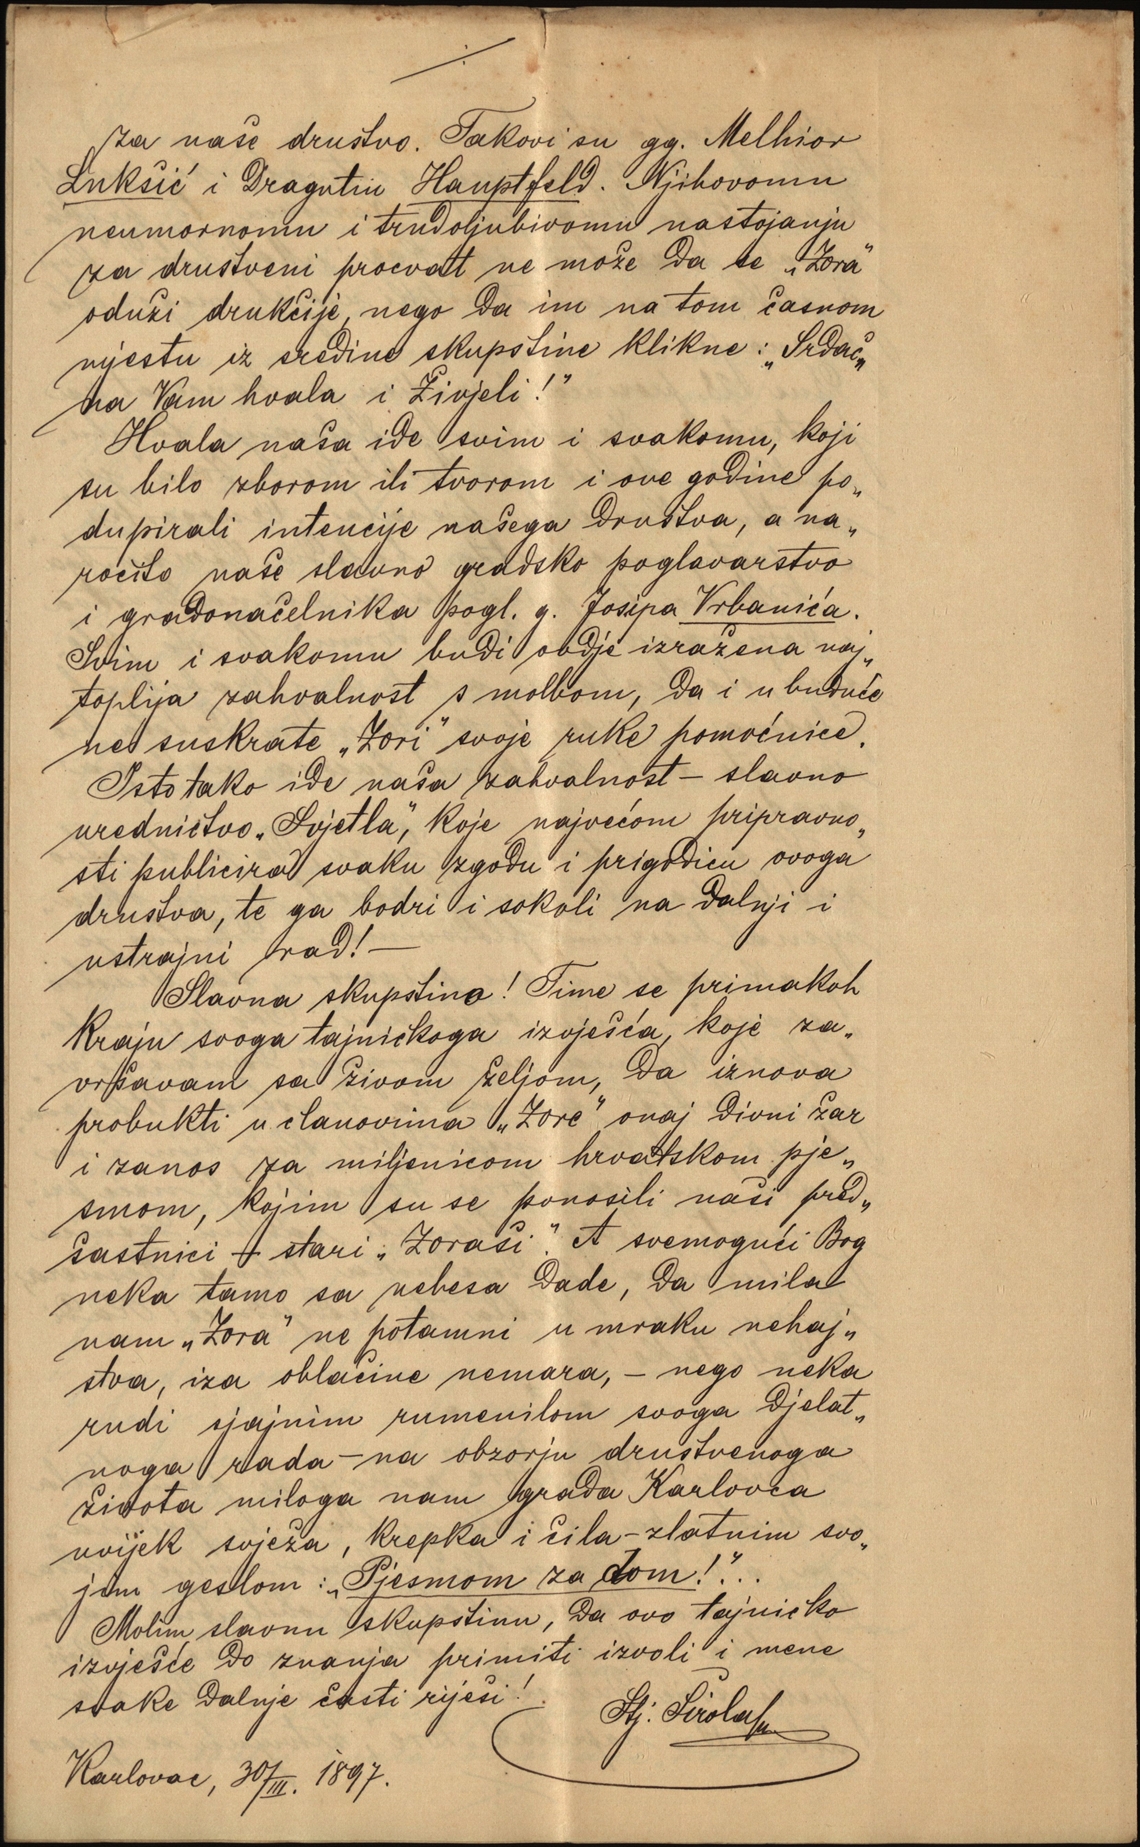 za naše društvo. Takovi su gg. Melhior
Lukšić i Dragutin Hauptfeld. Njihovomu
neumornomu i trudoljubivomu nastojanju
za društveni procvat ne može da se „Zora"
oduži drukčije, nego da im na tom časnom
mjestu iz sredine skupštine klikne: „Srdač„
na Vam hvala i Živjeli!"
Hvala naša ide svim i svakomu, koji
su bilo zborom ili tvorom i ove godine po„
dupirali intencije našega društva, a na„
ročito naše slavno gradsko poglavarstvo
i gradonačelnika pogl. g. Josipa Vrbanića.
Svim i svakomu budi ovdje izražena naj„
toplija zahvalnost s molbom, da i u buduće
ne suskrate „Zori" svoje ruke pomoćnice.
Isto tako ide naša zahvalnost – slavno
uredničtvo „Svjetla", koje najvećom pripravno„
sti publicira svaku zgodu i prigodicu ovoga
društva, te ga bodri i sokoli na dalnji i
ustrajni rad! –
Slavna skupštino! Time se primakoh
kraju svoga tajničkoga izvješća, koje za„
vršavam sa živom željom, da iznova
probukti u članovima „Zore" onaj divni žar
i zanos za miljenicom hrvatskom pje„
smom, kojim su se ponosili naši pred„
šastnici – stari „Zoraši". A svemogući Bog
neka tamo sa nebesa dade, da mila
nam „Zora" ne potamni u mraku nehaj„
stva, iza oblačine nemara, – nego neka
rudi sjajnim rumenilom svoga djelat„
noga rada – na obzorju društvenoga
života miloga nam grada Karlovca
uvijek svježa, krepka i čila – zlatnim svo„
jim geslom: „Pjesmom za dom!"..
Molim slavnu skupštinu, da ovo tajničko
izvješće do znanja primiti izvoli i mene
svake dalnje časti riješi!
Stj. Širola
Karlovac, 30/III. 1897.